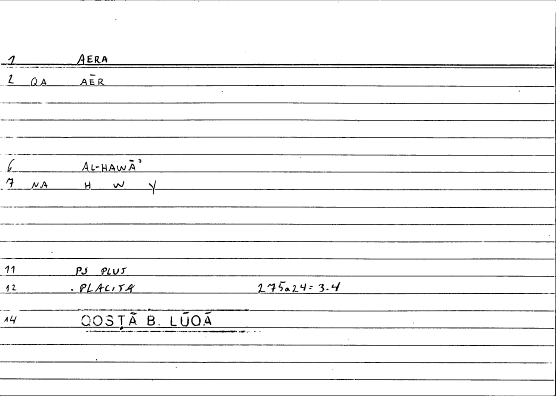 1 AERA
2 QA AĒR
6 AL-HAWĀʾ
7 NA H W Y
11 PS PLUT
12 . PLACITA 275a24 = 3-4
14 QOSṬĀ B. LŪQĀ